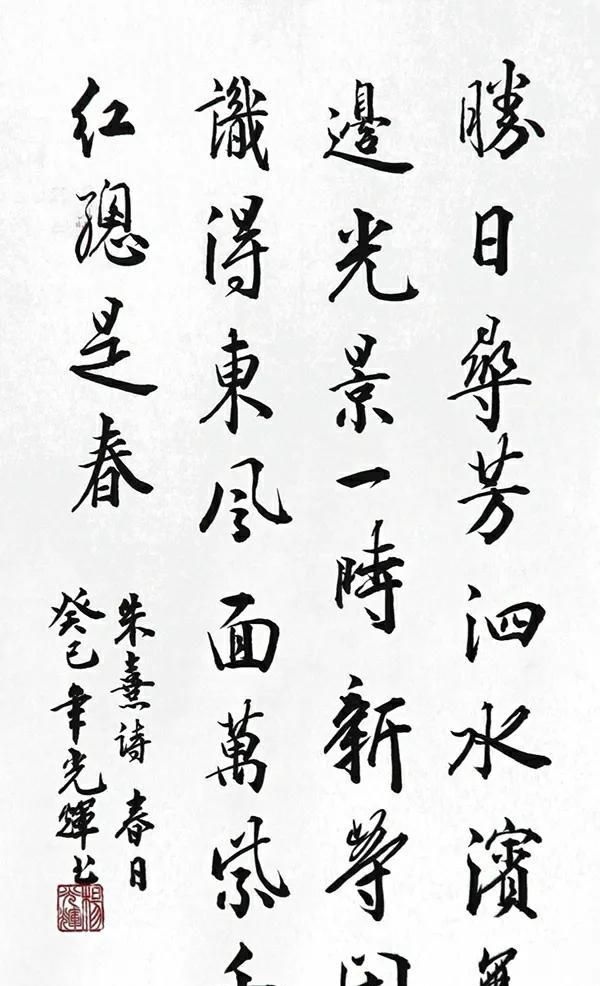 勝日尋芳泗水濱無
邊光景一時新等
識得東風面萬紫千
紅總是春
朱熹詩 春日
癸巳年光輝书
楊光輝